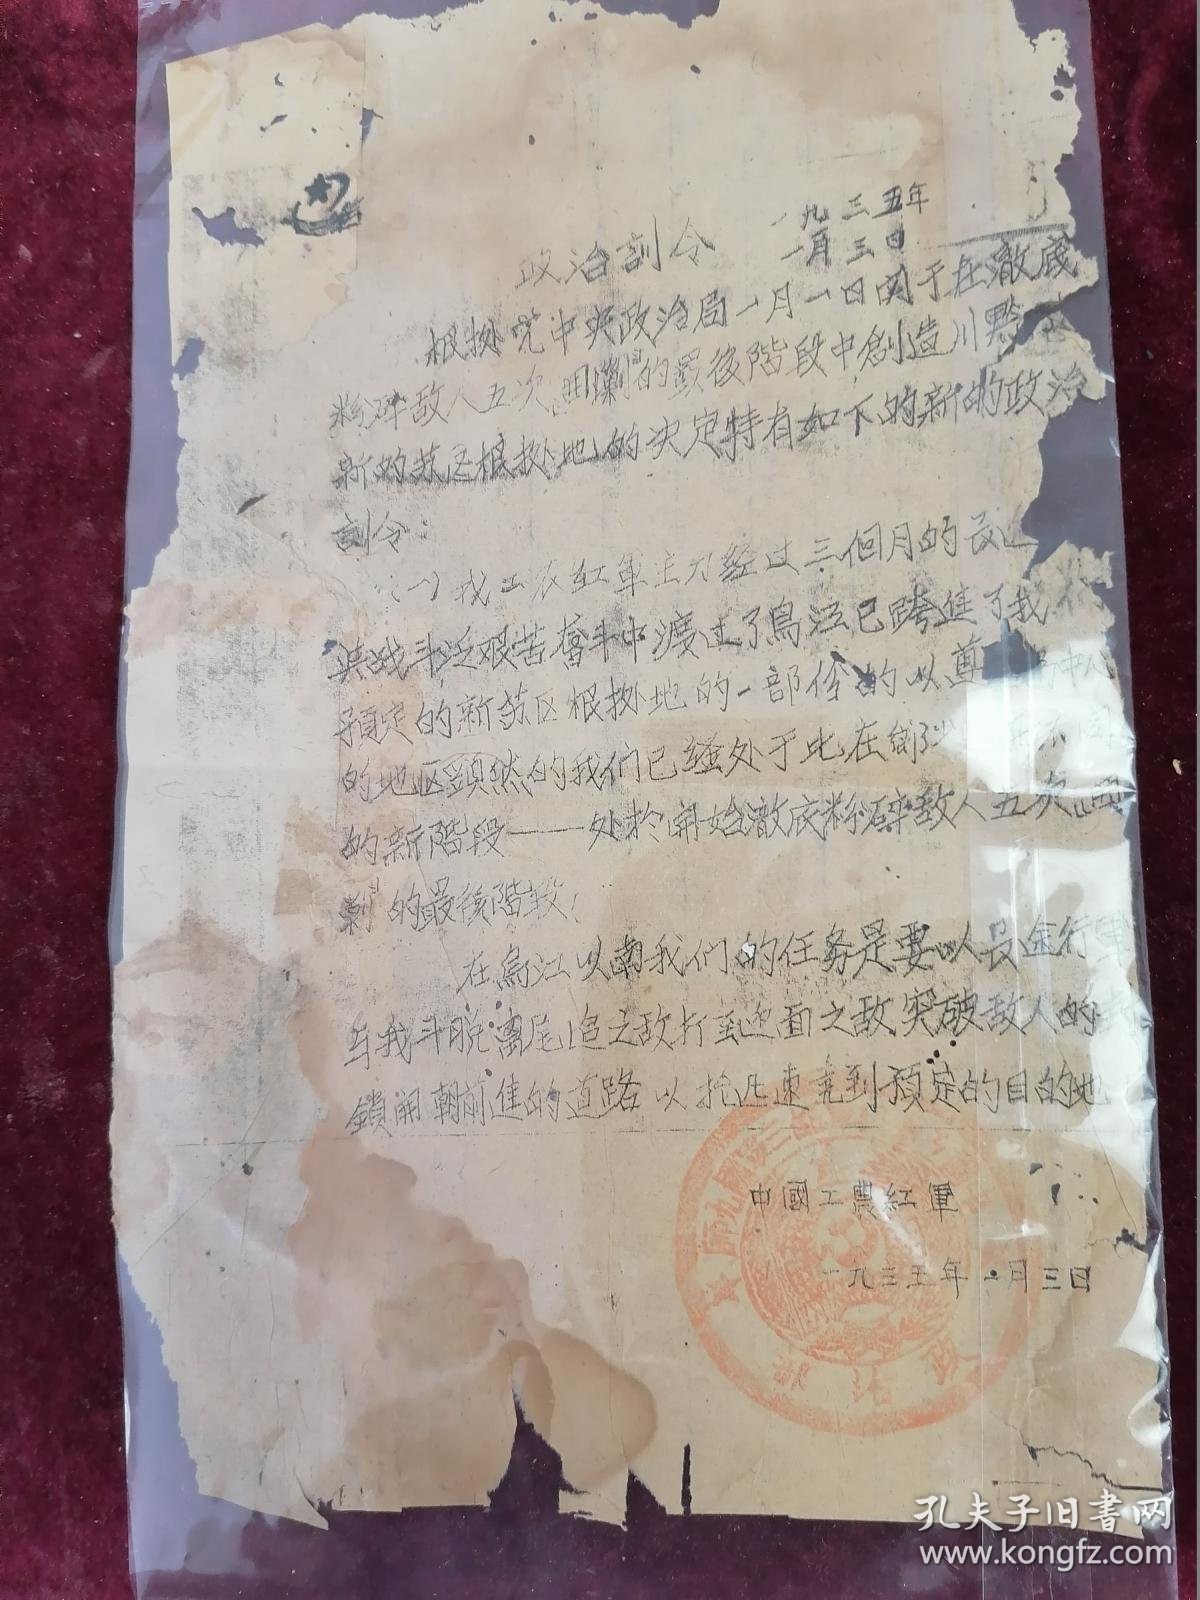 一九三五年
政治訓令 一月三日
根据党中央政治局一月一日関于在澈底
粉碎敵人五次囲剿的最後階段中創造川黔
新的苏区根据地的决定特有如下的新的政治
訓令：
（一）我工农红軍主力经过三個月的長途
英战斗 艰苦奮斗中渡过了烏江已跨進了我
預定的新苏区根据地的一部份的以遵
的地区顕然的我们已 处于
的新階段——处於開始澈底粉碎敵人五次囲
剿的最後階段！
在烏江以南我们的任务是要以長途行軍
与我斗脱离尾追之敵打 迎面之敵突破敵人的封
鎖開朝前進的道路以 速 到預定的目的地
中國工農紅軍
一九三五年一月三日
政治部
孔夫子旧書网
www.kongfz.com